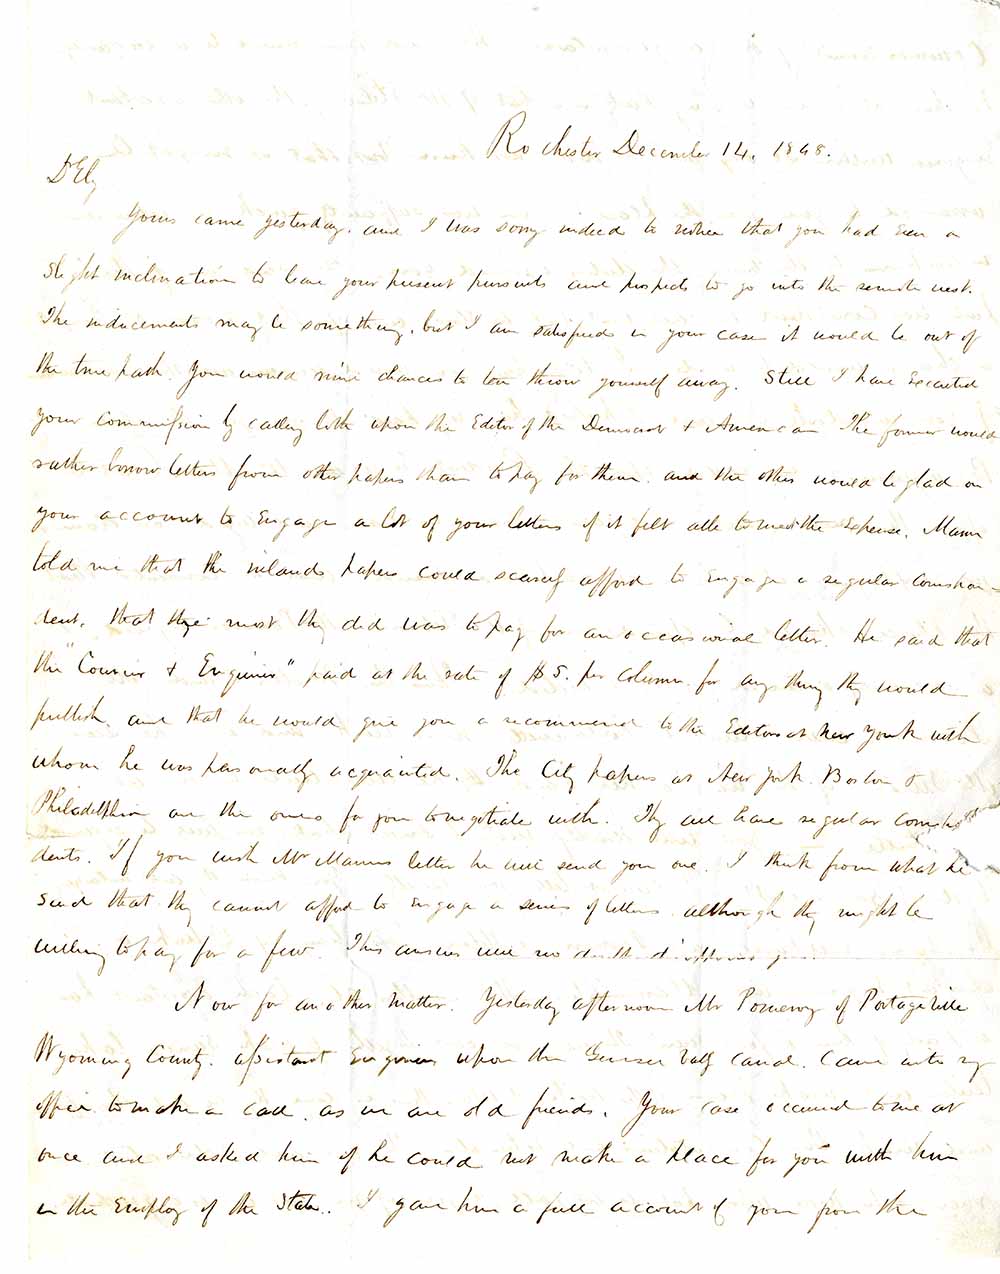 Rochester December 14, 1848.
D Ely
Yours came yesterday, and I was sorry indeed to notice that you had even a
slight inclination to leave your present pursuits and prospects to go into the remote west.
The inducements may be something, but I am satisfied in your case it would be out of
the true path. You would nine chances to ten throw yourself away. Still I have executed
your commission by calling both upon the Editor of the Democrat & American The former would
rather borrow letters from other papers than to pay for them, and the other would be glad on
your account to engage a lot of your letters if it felt able to meet the expense. Mann
told me that the inland papers could scarcely afford to engage a regular correspon-
dent, that the most they did was to pay for an occasional letter. He said that
the "Courier & Enquirer" paid at the rate of $5. per column for any thing they would
publish, and that he would give you a recommend to the Editors at New York with
whom he was personally acquainted. The City papers at New York, Boston &
Philadelphia are the ones for you to negotiate with. They all have regular correspon
dents. If you wish Mr Manns letter he will send you one. I think from what he
said that they cannot afford to engage a series of letters although they might be
willing to pay for a few. This answer will no doubt disappoint you.
Now for another matter. Yesterday afternoon Mr Pomeroy of Portageville
Wyoming County, assistant Engineer upon the Genesee Vally Canal, came into my
office to make a call, as we are old friends. Your case occurred to me at
once and I asked him if he could not make a place for you with him
in the employ of the State. I gave him a full account of you from the